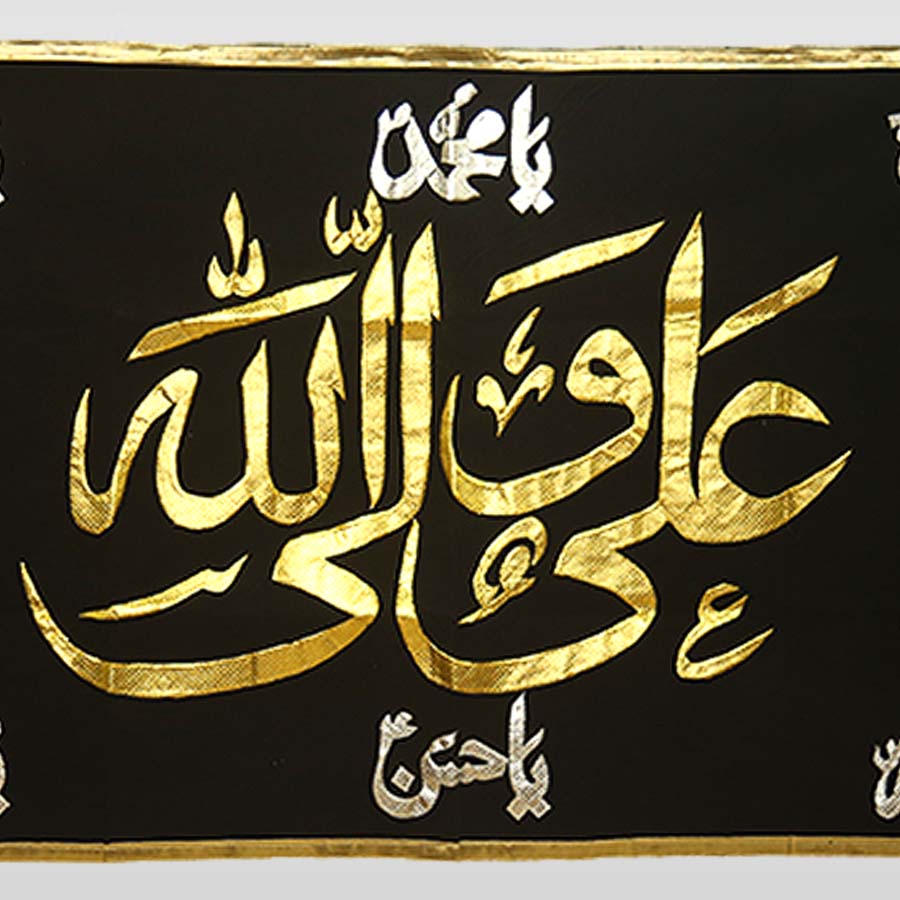 یا محمد
علی ولی الله
یا حسن